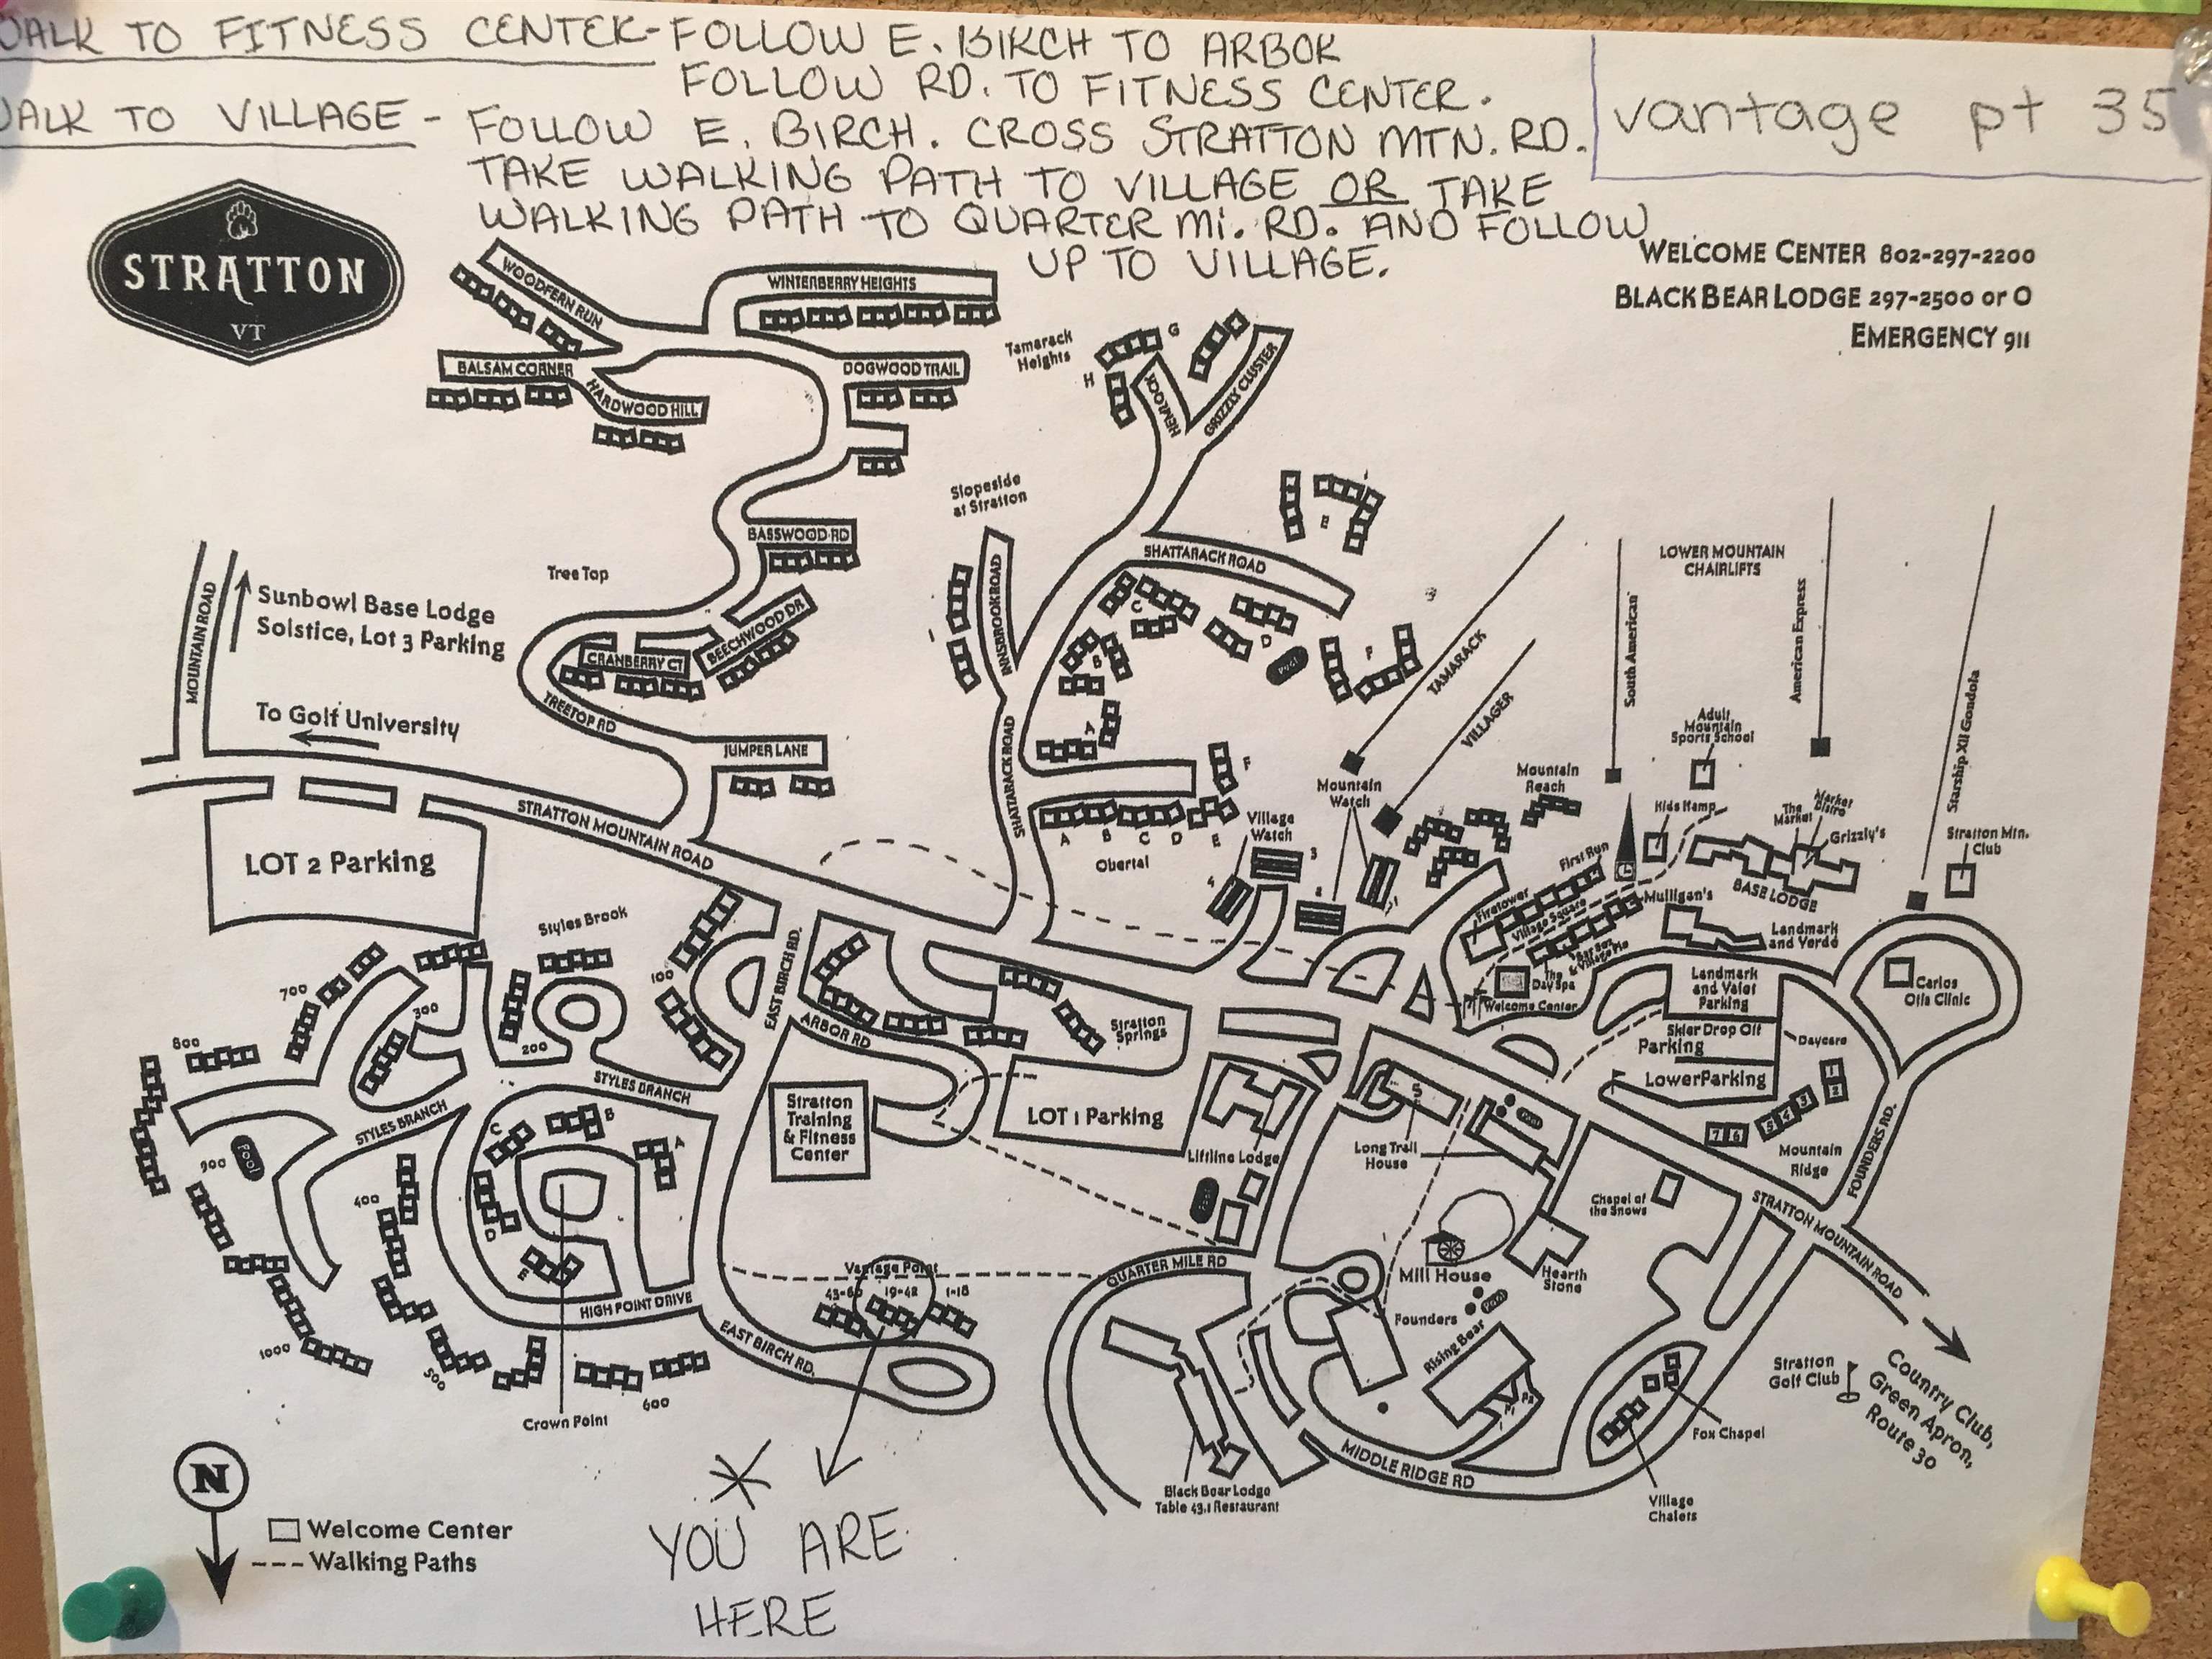 WALK TO FITNESS CENTER - FOLLOW E. BIRCH TO ARBOR
FOLLOW RD. TO FITNESS CENTER.
WALK TO VILLAGE - FOLLOW E. BIRCH. CROSS STRATTON MTN. RD.
TAKE WALKING PATH TO VILLAGE OR TAKE
WALKING PATH TO QUARTER MI. RD. AND FOLLOW
UP TO VILLAGE.
vantage pt 35
STRATTON
VT
WELCOME CENTER 802-297-2200
BLACK BEAR LODGE 297-2500 or 0
EMERGENCY 911
WOODFERN RUN
WINTERBERRY HEIGHTS
BALSAM CORNER
HARDWOOD HILL
DOGWOOD TRAIL
Tamarack
Heights
G
H
HEMLOCK
GRIZZLY CLUSTER
Slopeside
at Stratton
BASSWOOD RD
Tree Top
BEECHWOOD DR
CRANBERRY CT
TREETOP RD
JUMPER LANE
INNSBROOK ROAD
SHATTARACK ROAD
E
C
D
B
A
F
Pool
SHATTARACK ROAD
TAMARACK
VILLAGER
South American
LOWER MOUNTAIN
CHAIRLIFTS
American Express
Starship XII Gondola
MOUNTAIN ROAD
Sunbowl Base Lodge
Solstice, Lot 3 Parking
To Golf University
STRATTON MOUNTAIN ROAD
LOT 2 Parking
A
B
C
D
E
F
Obertal
Village
Watch
4
3
2
1
Mountain
Watch
Mountain
Reach
Adult
Mountain
Sports School
Kids Kamp
The
Market
Market
Bistro
Grizzly's
Stratton Mtn.
Club
BASE LODGE
First Run
Firetower
Village Square
Mulligan's
Landmark
and Verde
The
Day Spa
Welcome Center
Landmark
and Valet
Parking
Skier Drop Off
Parking
Lower Parking
Daycare
Carlos
Otis Clinic
1
2
3
4
5
6
7
Mountain
Ridge
FOUNDERS RD.
Styles Brook
100
200
300
700
800
900
Pool
400
500
600
1000
STYLES BRANCH
STYLES BRANCH
EAST BIRCH RD.
ARBOR RD
Stratton
Springs
Stratton
Training
& Fitness
Center
LOT 1 Parking
Liftline Lodge
5
Long Trail
House
Pool
Chapel of
the Snows
STRATTON MOUNTAIN ROAD
C
B
A
D
E
HIGH POINT DRIVE
Crown Point
Vantage Point
19-42
1-18
EAST BIRCH RD.
QUARTER MILE RD
Mill House
Hearth
Stone
Founders
Pool
Rising Bear
MIDDLE RIDGE RD
Black Bear Lodge
Table 43.1 Restaurant
Fox Chapel
Village
Chalets
Stratton
Golf Club
Country Club,
Green Apron,
Route 30
N
Welcome Center
Walking Paths
YOU ARE
HERE